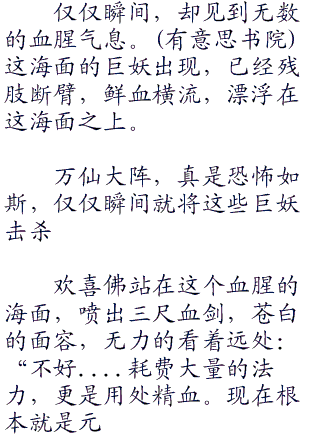 仅仅瞬间，却见到无数
的血腥气息。(有意思书院)
这海面的巨妖出现，已经残
肢断臂，鲜血横流，漂浮在
这海面之上。
万仙大阵，真是恐怖如
斯，仅仅瞬间就将这些巨妖
击杀
欢喜佛站在这个血腥的
海面，喷出三尺血剑，苍白
的面容，无力的看着远处：
“不好....耗费大量的法
力，更是用处精血。现在根
本就是元